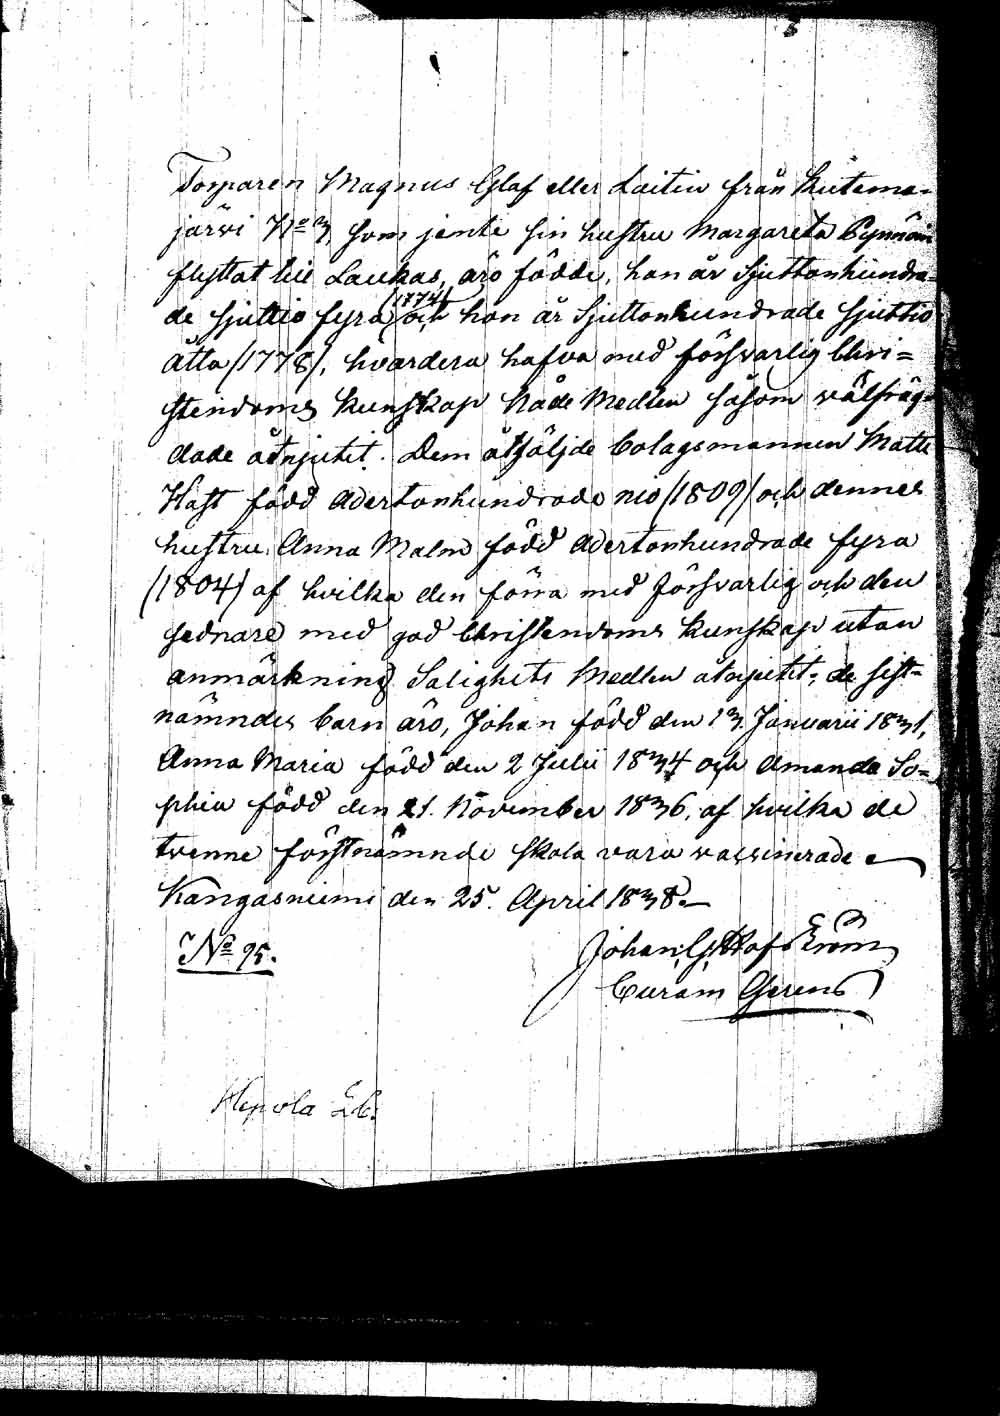 Torparen Magnus Glaf eller Laitin från Kutema-
järvi No 3, som jemte sin hustru Margareta Pynnöin
flyttat till Laukas, äro födde, han år Sjuttonhundra-
de sjuttio fyra (1774) och hon år Sjuttonhundrade sjuttio
åtta (1778), hvardera hafva med försvarlig Chri=
stendoms Kunskap Nåde Medlen såsom välfräg-
dade åtnjutit. Dem åtfölide bolagsmannen Matts
Hast född Adertonhundrade nio (1809) och dennes
hustru Anna Malm född Adertonhundrade fyra
(1804) af hvilka den förra med försvarlig och den
sednare med god Christendoms kunskap utan
anmärkning Salighets Medlen åtnjutit; de sist=
nämndes barn äro, Johan född den 13. Januarii 1831,
Anna Maria född den 2 Julii 1834 och Amanda So=
phia född den 21. November 1836, af hvilka de
tvenne förstnämnde skola vara vaccinerade
Kangasniemi den 25. April 1838.
No 95.
Johan G. Hafström
Curam Gerens